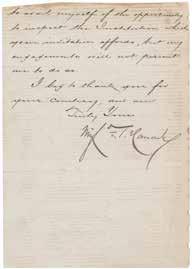 to avail myself of the opportunity
to inspect the Institution which
your invitation affords, but my
engagements will not permit
me to do so.
I beg to thank you for
your Courtesy, and am
Truly Yours